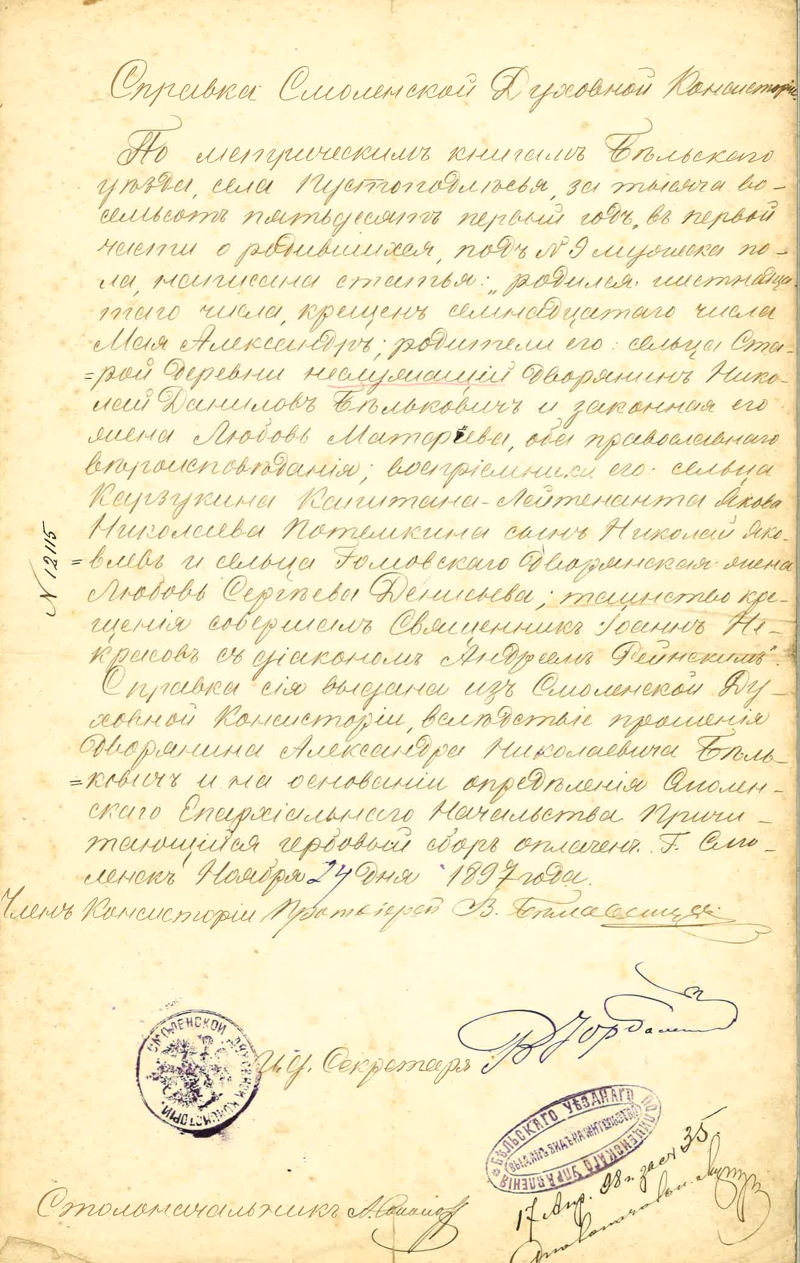 Справка Смоленской Духовной Консисторіи.
По метрическимъ книгамъ Бѣльскаго
уѣзда, села Пустоподлѣсья, за тысяча во-
семьсотъ пятьдесятъ первый годъ, въ первой
части о родившихся, подъ N 9 мужеска по-
ла, написана статья: „родился шестнадца-
таго числа, крещенъ семнадцатаго числа
Мая Александръ; родители его: сельца Ста-
=рой Деревни неслужащій Дворянинъ Нико-
лай Даниловъ Бѣльковичъ и законная его
жена Любовь Матвѣева, оба православнаго
вѣроисповѣданія; воспріемники его: сельца
Карзукина Капитана-Лейтенанта Якова
Николаева Потемкина сынъ Николай Яко-
=влевъ и сельца Гомовскаго Дворянская жена
Любовь Сергѣева Денисьева; таинство кре-
щенія совершалъ Священникъ Іоаннъ Не-
красовъ съ діакономъ Андреемъ Рейнскимъ".
Справка сія выдана изъ Смоленской Ду-
ховной Консисторіи, вслѣдствіе прошенія
Дворянина Александра Николаевича Бѣль-
=ковичъ и на основаніи опредѣленія Смолен-
скаго Епархіальнаго Начальства. Причи-
тающійся гербовый сборъ оплаченъ. Г. Смо-
ленскъ Ноября 24 дня 1897 года.
Членъ Консисторіи Протоіерей В.
N 12115
СМОЛЕНСКОЙ ДУХОВНОЙ КОНСИСТОРІИ.
И. д. Секретаря
БѢЛЬСКАГО УѢЗДНАГО ПОЛИЦЕЙСКАГО УПРАВЛЕНІЯ
ВЫДАНЪ ВИДЪ НА ЖИТЕЛЬСТВО
17 Апр. 98 г. за № 35.
Столоначальникъ